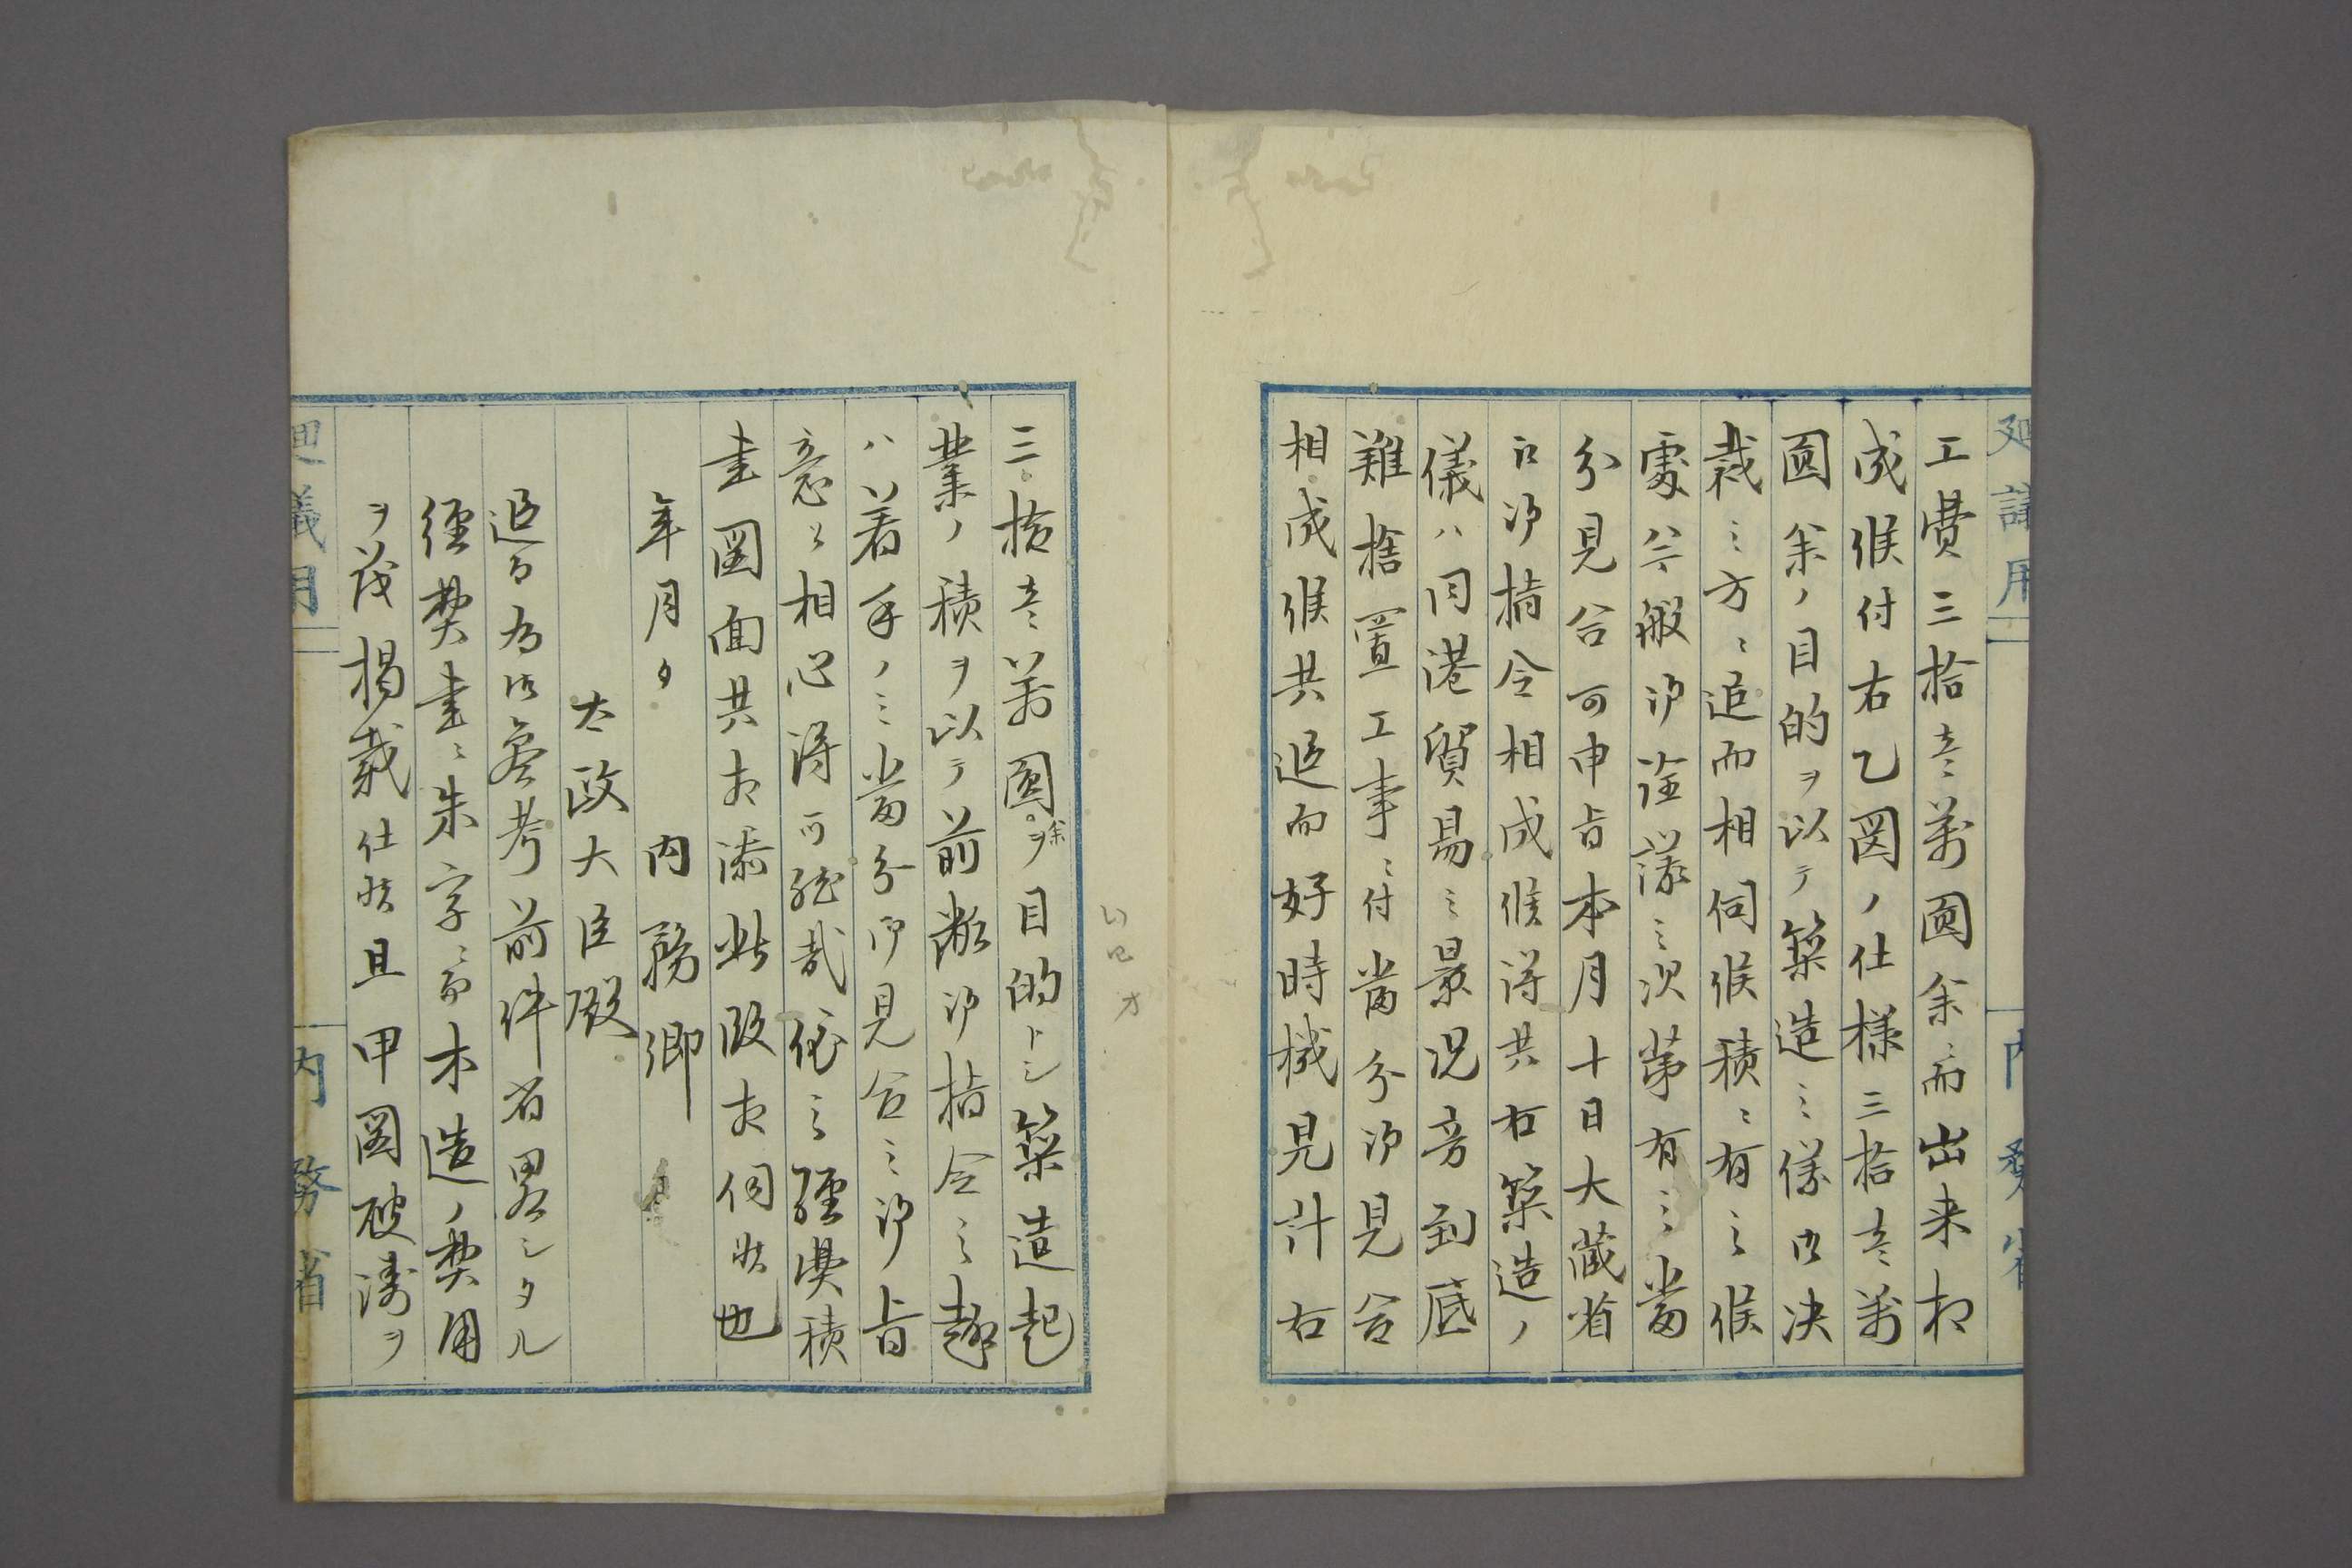 廻議用 内務省
工費三拾壱萬圓余ニ而出来相
成候付右乙図ノ仕様三拾壱萬
圓余ノ目的ヲ以テ築造之儀御決
裁之方ニ追而相伺候積ニ有之候
處今般御詮議之次第有之当
分見合可申旨本月十日大蔵省
江御指令相成候得共右築造ノ
儀ハ同港貿易之景況旁到底
難捨置工事ニ付当分御見合
相成候共追而好時機見計右
三拾壱萬圓余ヲ目的トシ築造起
業ノ積ヲ以テ前顕御指令之趣
ハ着手ノミ当分御見合之御旨
意ト相心得可然哉依之経費積
書図面共相添此段相伺候也
年月日 内務卿
太政大臣殿
追而為御参考前件省略シタル
経費書ニ朱字ニ而木造ノ費用
ヲ茂掲載仕候且甲図破濤ヲ
廻議用 内務省